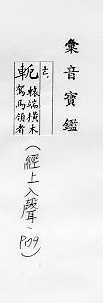 彙音寶鑑
去
軛 轅端橫木
駕馬領者
(經上入聲,P.09)